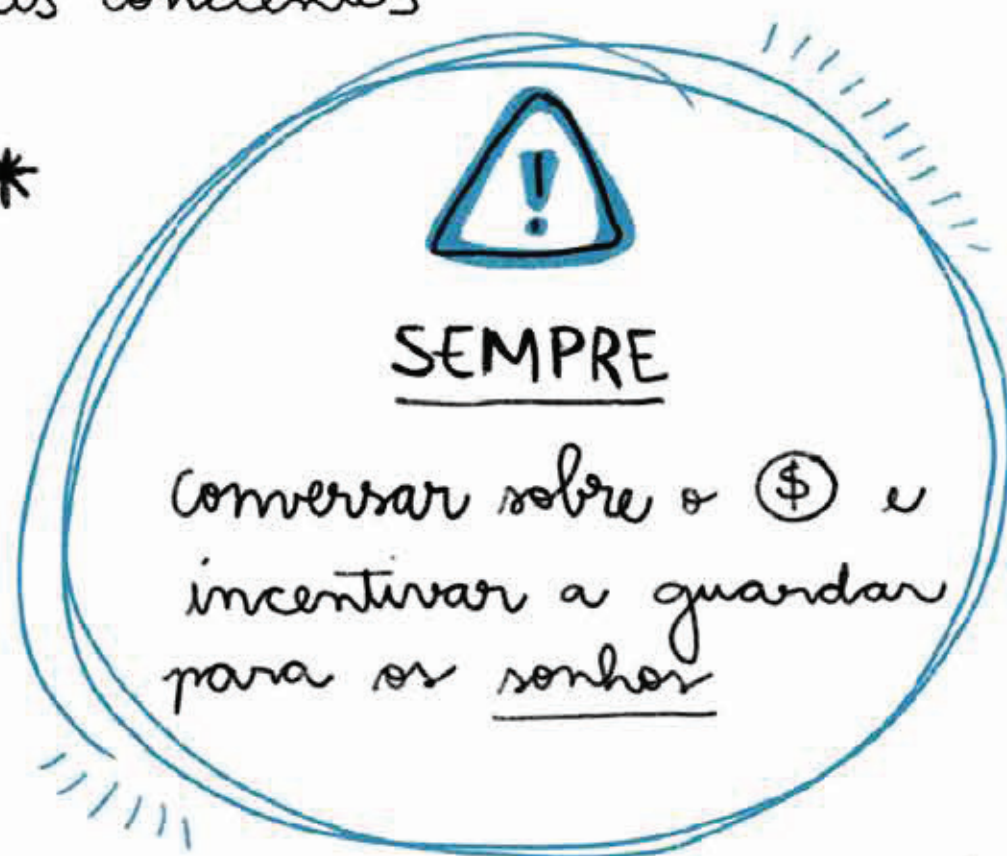 *
SEMPRE
conversar sobre o $ e
incentivar a guardar
para os sonhos